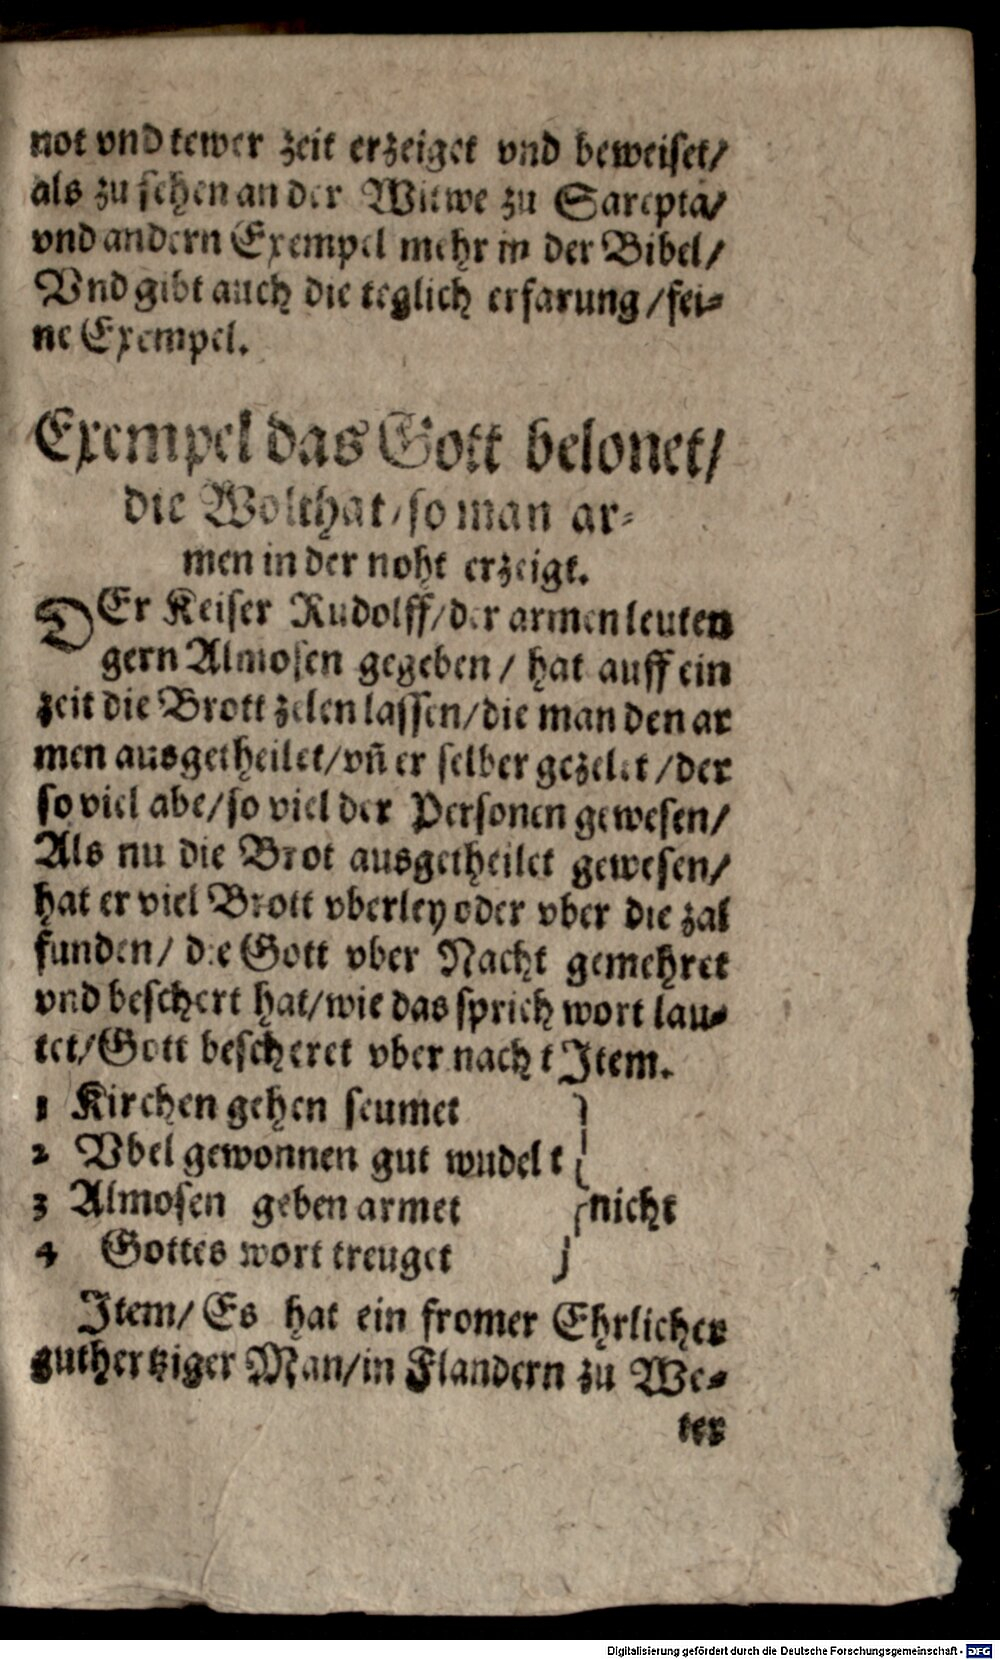 not vnd tewer zeit erzeiget vnd beweiset/
als zu sehen an der Witwe zu Sarepta/
vnd andern Exempel mehr in der Bibel/
Vnd gibt auch die teglich erfarung / sei⸗
ne Exempel.
Exempel das Gott belonet/
die Wolthat / so man ar⸗
men in der noht erzeigt.
DEr Keiser Rudolff / der armen leuten
gern Almosen gegeben / hat auff ein
zeit die Brott zelen lassen / die man den ar
men ausgetheilet / vñ er selber gezelet / der
so viel abe / so viel der Personen gewesen /
Als nu die Brot ausgetheilet gewesen /
hat er viel Brott vberley oder vber die zal
funden / die Gott vber Nacht gemehret
vnd beschert hat / wie das sprich wort lau⸗
tet / Gott bescheret vber nach t Item.
1 Kirchen gehen seumet
2 Vbel gewonnen gut wudel t
3 Almosen geben armet } nicht
4 Gottes wort treuget
Item / Es hat ein fromer Ehrlicher
guthertziger Man / in Flandern zu We⸗
ter
Digitalisierung gefördert durch die Deutsche Forschungsgemeinschaft - DFG